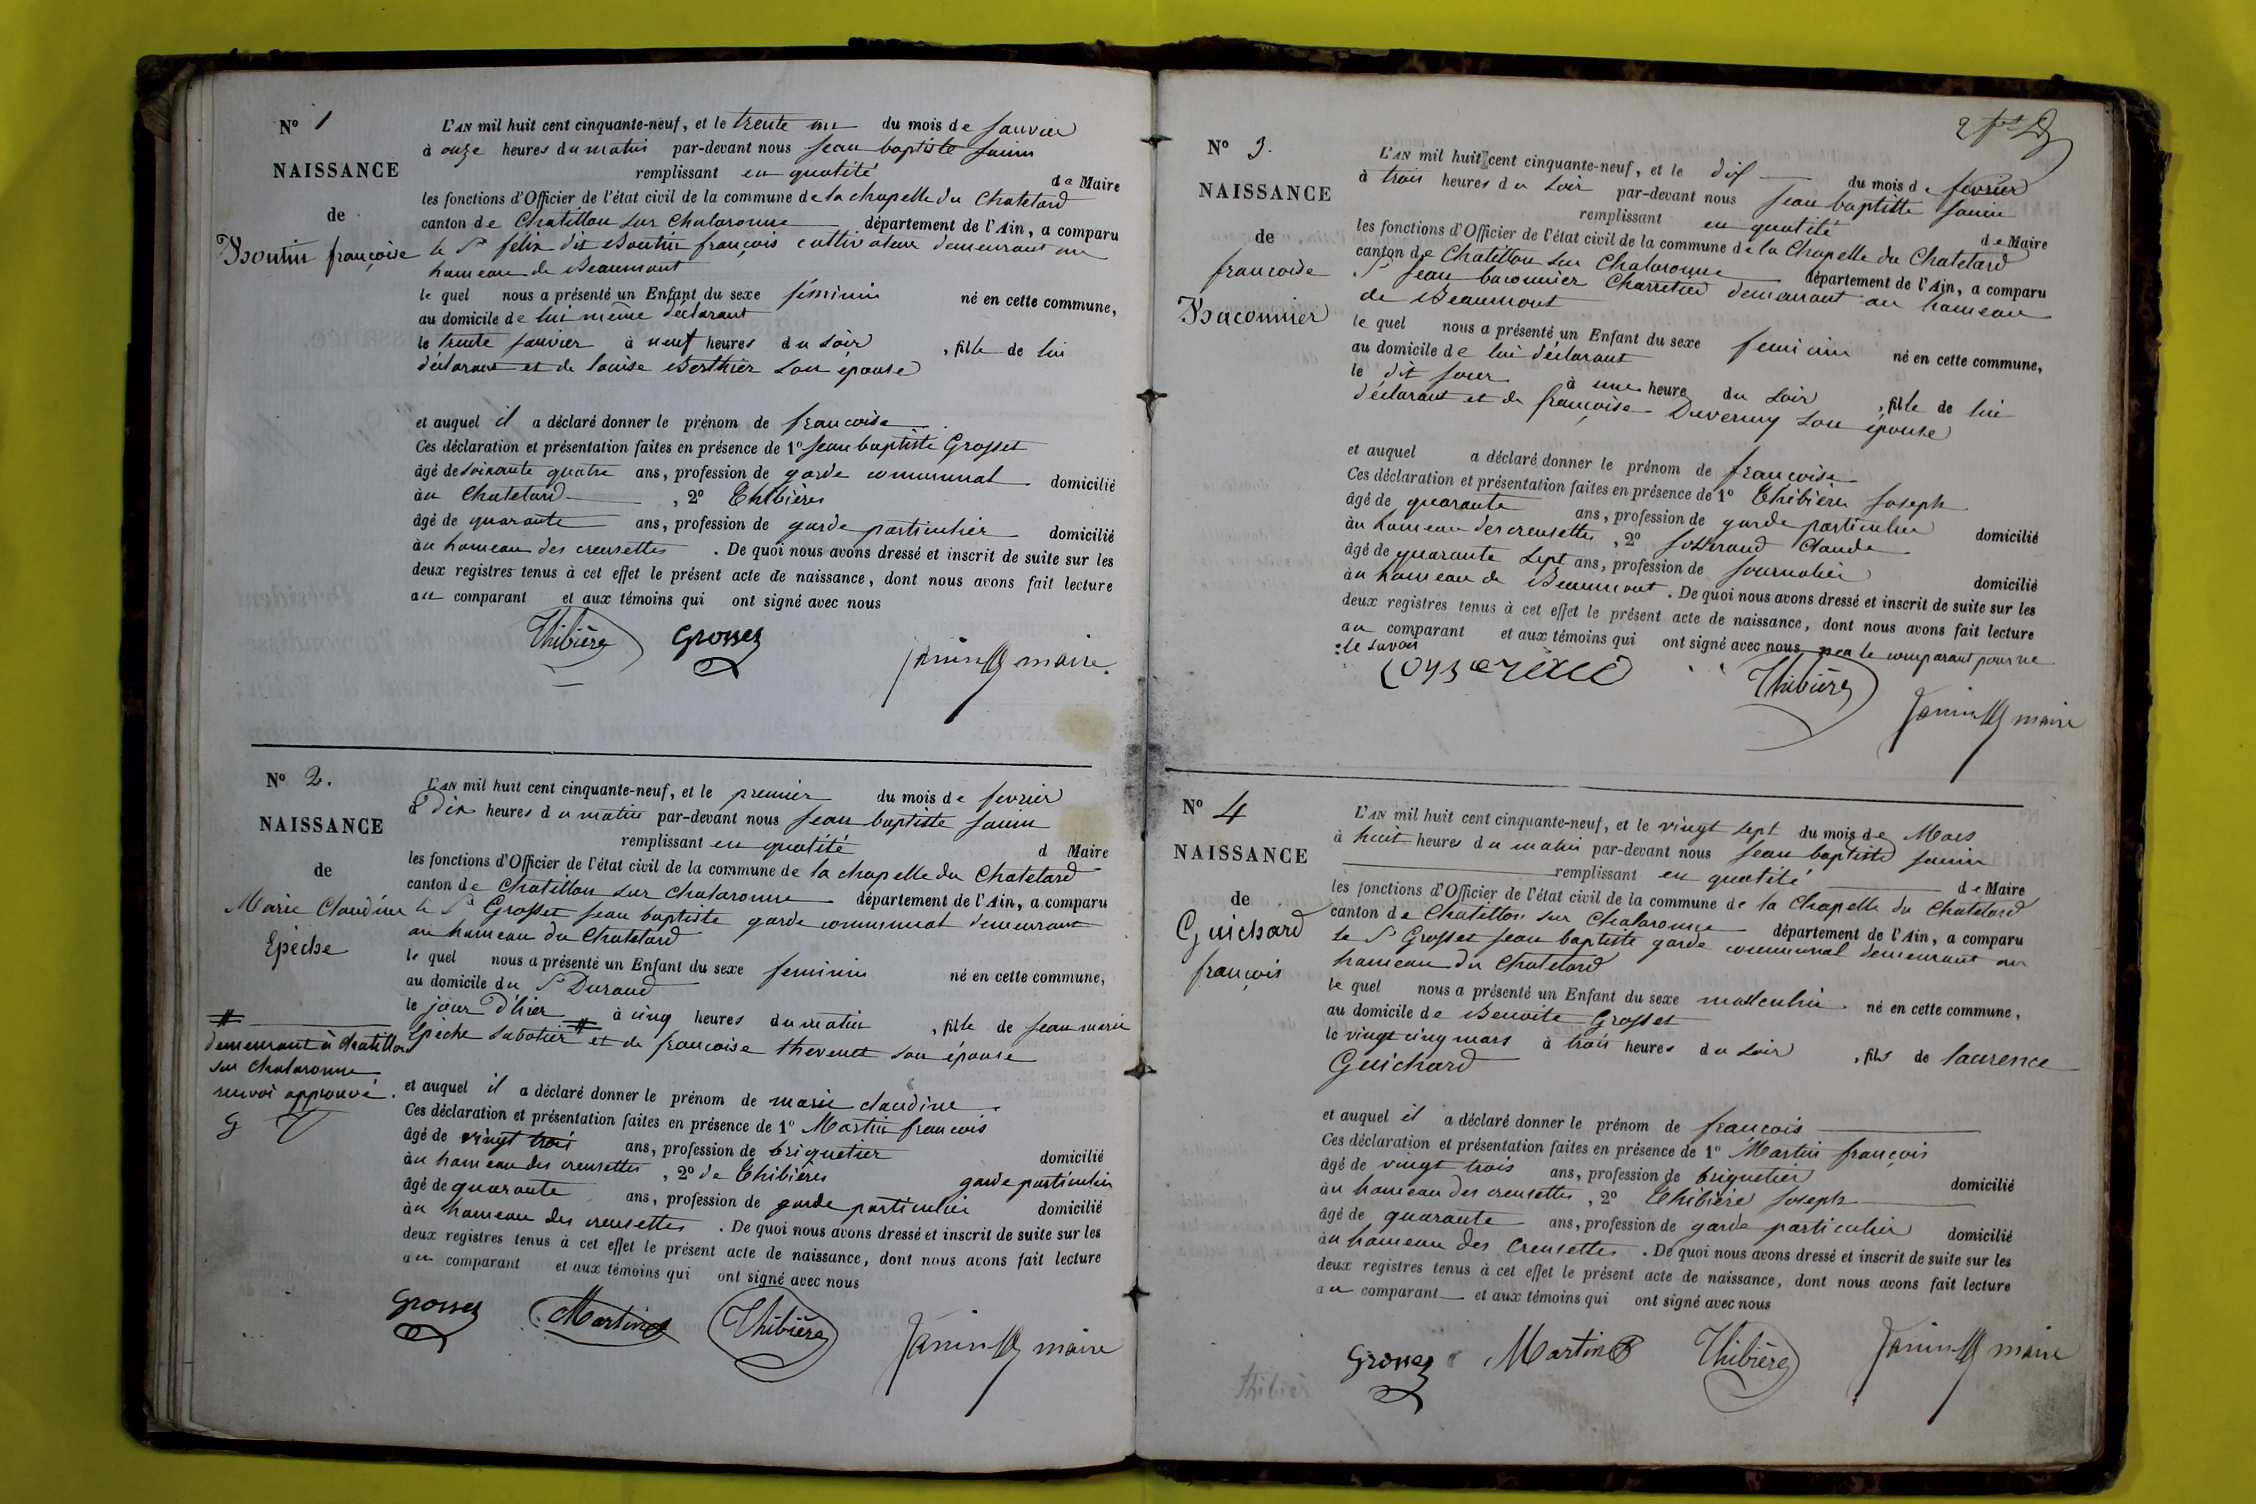 N° 1
NAISSANCE
de
Boutin françoise
L'AN mil huit cent cinquante-neuf, et le trente un du mois de janvier
à onze heures du matin par-devant nous jean baptiste janin
remplissant en qualité de Maire
les fonctions d'Officier de l'état civil de la commune de la chapelle du Chatelard
canton de Chatillon sur chalaronne département de l'Ain, a comparu
le Sr félix dit Boutin françois cultivateur demeurant au
hameau de Beaumont
le quel nous a présenté un Enfant du sexe féminin né en cette commune,
au domicile de lui même déclarant
le trente janvier à neuf heures du soir , fille de lui
déclarant et de louise Berthier son épouse
et auquel il a déclaré donner le prénom de françoise
Ces déclaration et présentation faites en présence de 1° jean baptiste Grosset
âgé de soixante quatre ans, profession de garde communal domicilié
au Chatelard , 2° Thibière
âgé de quarante ans, profession de garde particulier domicilié
au hameau des creusettes . De quoi nous avons dressé et inscrit de suite sur les
deux registres tenus à cet effet le présent acte de naissance, dont nous avons fait lecture
au comparant et aux témoins qui ont signé avec nous
Thibière Grosset janin maire
N° 2.
NAISSANCE
de
Marie Claudine
Epéche
L'AN mil huit cent cinquante-neuf, et le premier du mois de fevrier
à Dix heures du matin par-devant nous jean baptiste janin
remplissant en qualité d Maire
les fonctions d'Officier de l'état civil de la commune de la chapelle du Chatelard
canton de chatillon sur chalaronne département de l'Ain, a comparu
le Sr Grosset jean baptiste garde communal demeurant
au hameau du Chatelard
le quel nous a présenté un Enfant du sexe feminin né en cette commune,
au domicile du Sr Durand
le jour D'hier à cinq heures du matin , fille de jean marie
Epéche sabotier # et de françoise thevenet son épouse
# demeurant à chatillon
sur chalaronne
renvoi approuvé.
G T
et auquel il a déclaré donner le prénom de marie claudine
Ces déclaration et présentation faites en présence de 1° Martin francois
âgé de vingt trois ans, profession de briquetier domicilié
au hameau des creusettes , 2° de Thibière garde particulier
âgé de quarante ans, profession de garde particulier domicilié
au hameau des creusettes . De quoi nous avons dressé et inscrit de suite sur les
deux registres tenus à cet effet le présent acte de naissance, dont nous avons fait lecture
au comparant et aux témoins qui ont signé avec nous
Grosset Martin Thibière Janin maire
N° 3.
NAISSANCE
de
francoise
Baconnier
L'AN mil huit cent cinquante-neuf, et le dix du mois de fevrier
à trois heures du soir par-devant nous jean baptiste janin
remplissant en qualité de Maire
les fonctions d'Officier de l'état civil de la commune de la Chapelle du Chatelard
canton de Chatillon sur Chalaronne département de l'Ain, a comparu
Sr jean baconnier Charretier demeurant au hameau
de Beaumont
le quel nous a présenté un Enfant du sexe feminin né en cette commune,
au domicile de lui déclarant
le dit jour à une heure du soir , fille de lui
déclarant et de françoise Duvernay son épouse
et auquel a déclaré donner le prénom de francoise
Ces déclaration et présentation faites en présence de 1° Thibière Joseph
âgé de quarante ans, profession de garde particulier domicilié
au hameau des creusettes , 2° Claude
âgé de quarante sept ans, profession de journalier domicilié
au hameau de Beaumont . De quoi nous avons dressé et inscrit de suite sur les
deux registres tenus à cet effet le présent acte de naissance, dont nous avons fait lecture
au comparant et aux témoins qui ont signé avec nous non le comparant pour ne
le savoir
Thibière Janin maire
N° 4
NAISSANCE
de
Guichard
françois
L'AN mil huit cent cinquante-neuf, et le vingt sept du mois de Mars
à huit heures du matin par-devant nous jean baptiste janin
remplissant en qualité de Maire
les fonctions d'Officier de l'état civil de la commune de la Chapelle du Chatelard
canton de Chatillon sur Chalaronne département de l'Ain, a comparu
le Sr Grosset jean baptiste garde communal demeurant au
hameau du Chatelard
le quel nous a présenté un Enfant du sexe masculin né en cette commune,
au domicile de Benoite Grosset
le vingt cinq mars à trois heures du soir , fils de laurence
Guichard
et auquel il a déclaré donner le prénom de francois
Ces déclaration et présentation faites en présence de 1° Martin françois
âgé de vingt trois ans, profession de briquetier domicilié
au hameau des creusettes , 2° Thibière Joseph
âgé de quarante ans, profession de garde particulier domicilié
au hameau des Creusettes . De quoi nous avons dressé et inscrit de suite sur les
deux registres tenus à cet effet le présent acte de naissance, dont nous avons fait lecture
au comparant et aux témoins qui ont signé avec nous
Grosset Martin Thibière Janin maire